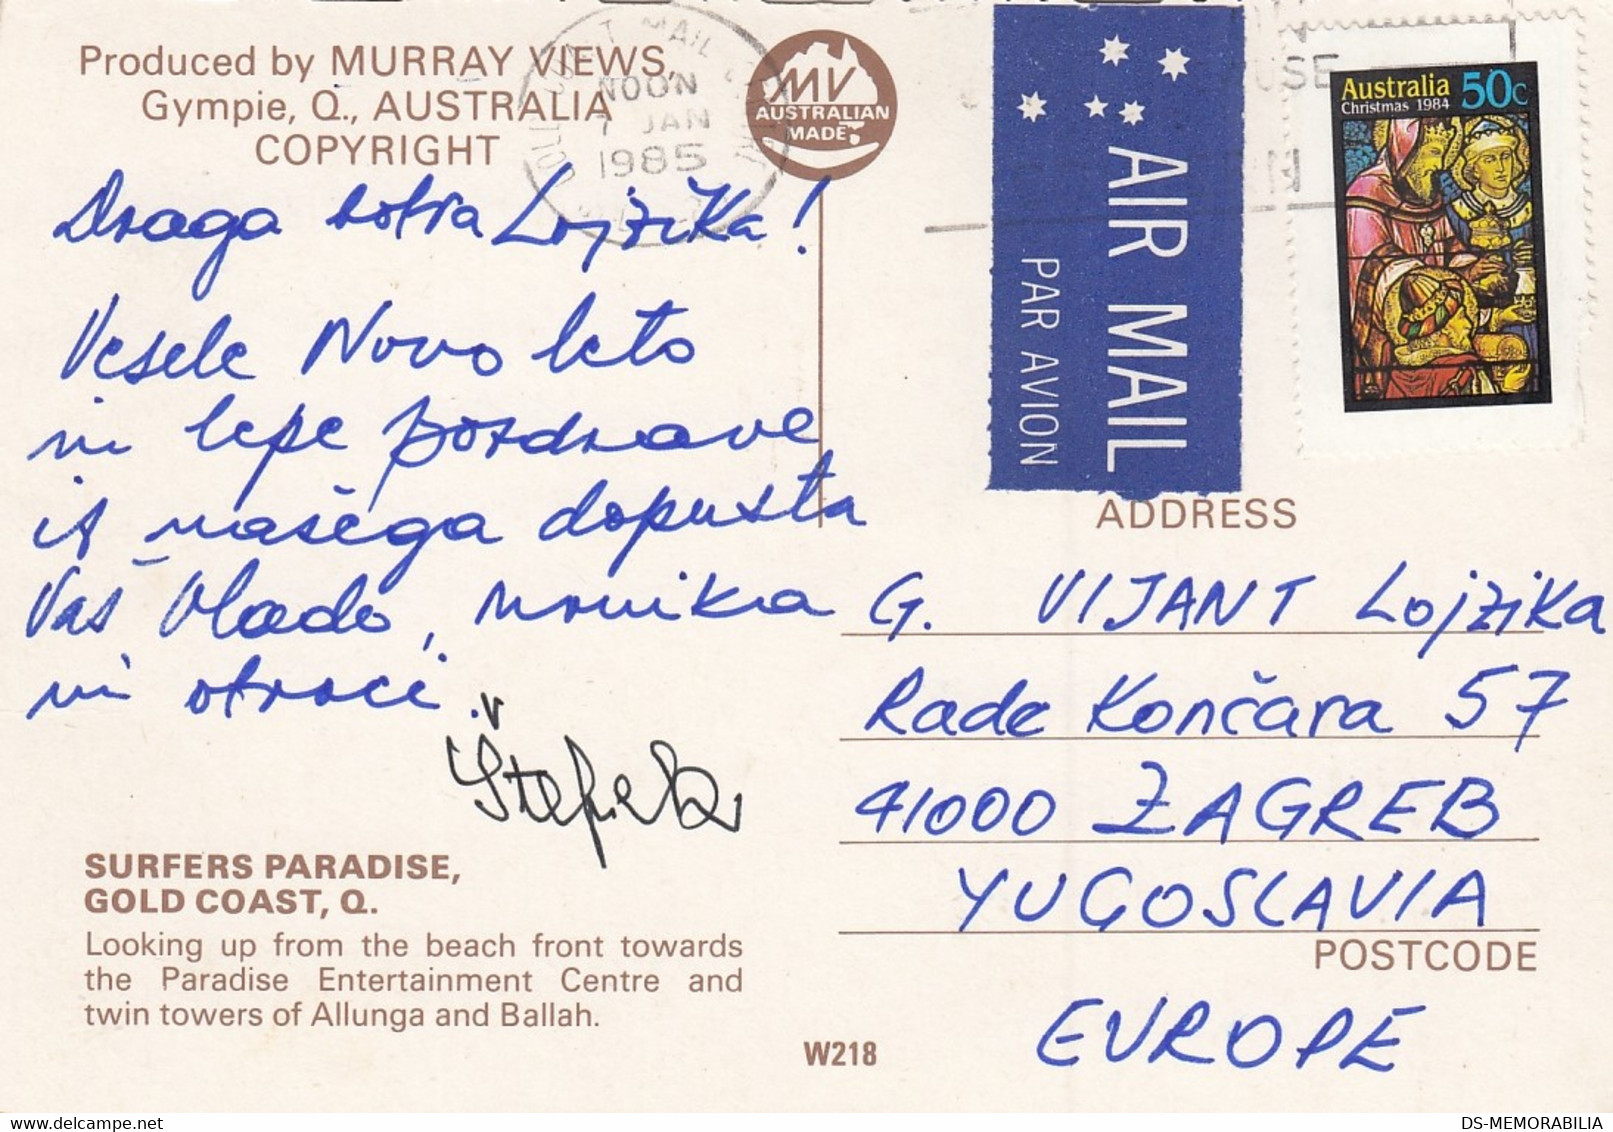 Produced by MURRAY VIEWS,
Gympie, Q., AUSTRALIA
COPYRIGHT
MV
AUSTRALIAN
MADE
NOON
7 JAN
1985
USE
AIR MAIL
PAR AVION
Australia 50c
Christmas 1984
Draga sotra Lojzika!
Vesele Novo leto
in lepe pozdrave
iz našega dopusta
Vaš Vlado, Monika
in otroci.
Štefek
SURFERS PARADISE,
GOLD COAST, Q.
Looking up from the beach front towards
the Paradise Entertainment Centre and
twin towers of Allunga and Ballah.
W218
ADDRESS
G. VIJANT Lojzika
Rade Končara 57
41000 ZAGREB
YUGOSLAVIA
POSTCODE
EUROPE
DS-MEMORABILIA